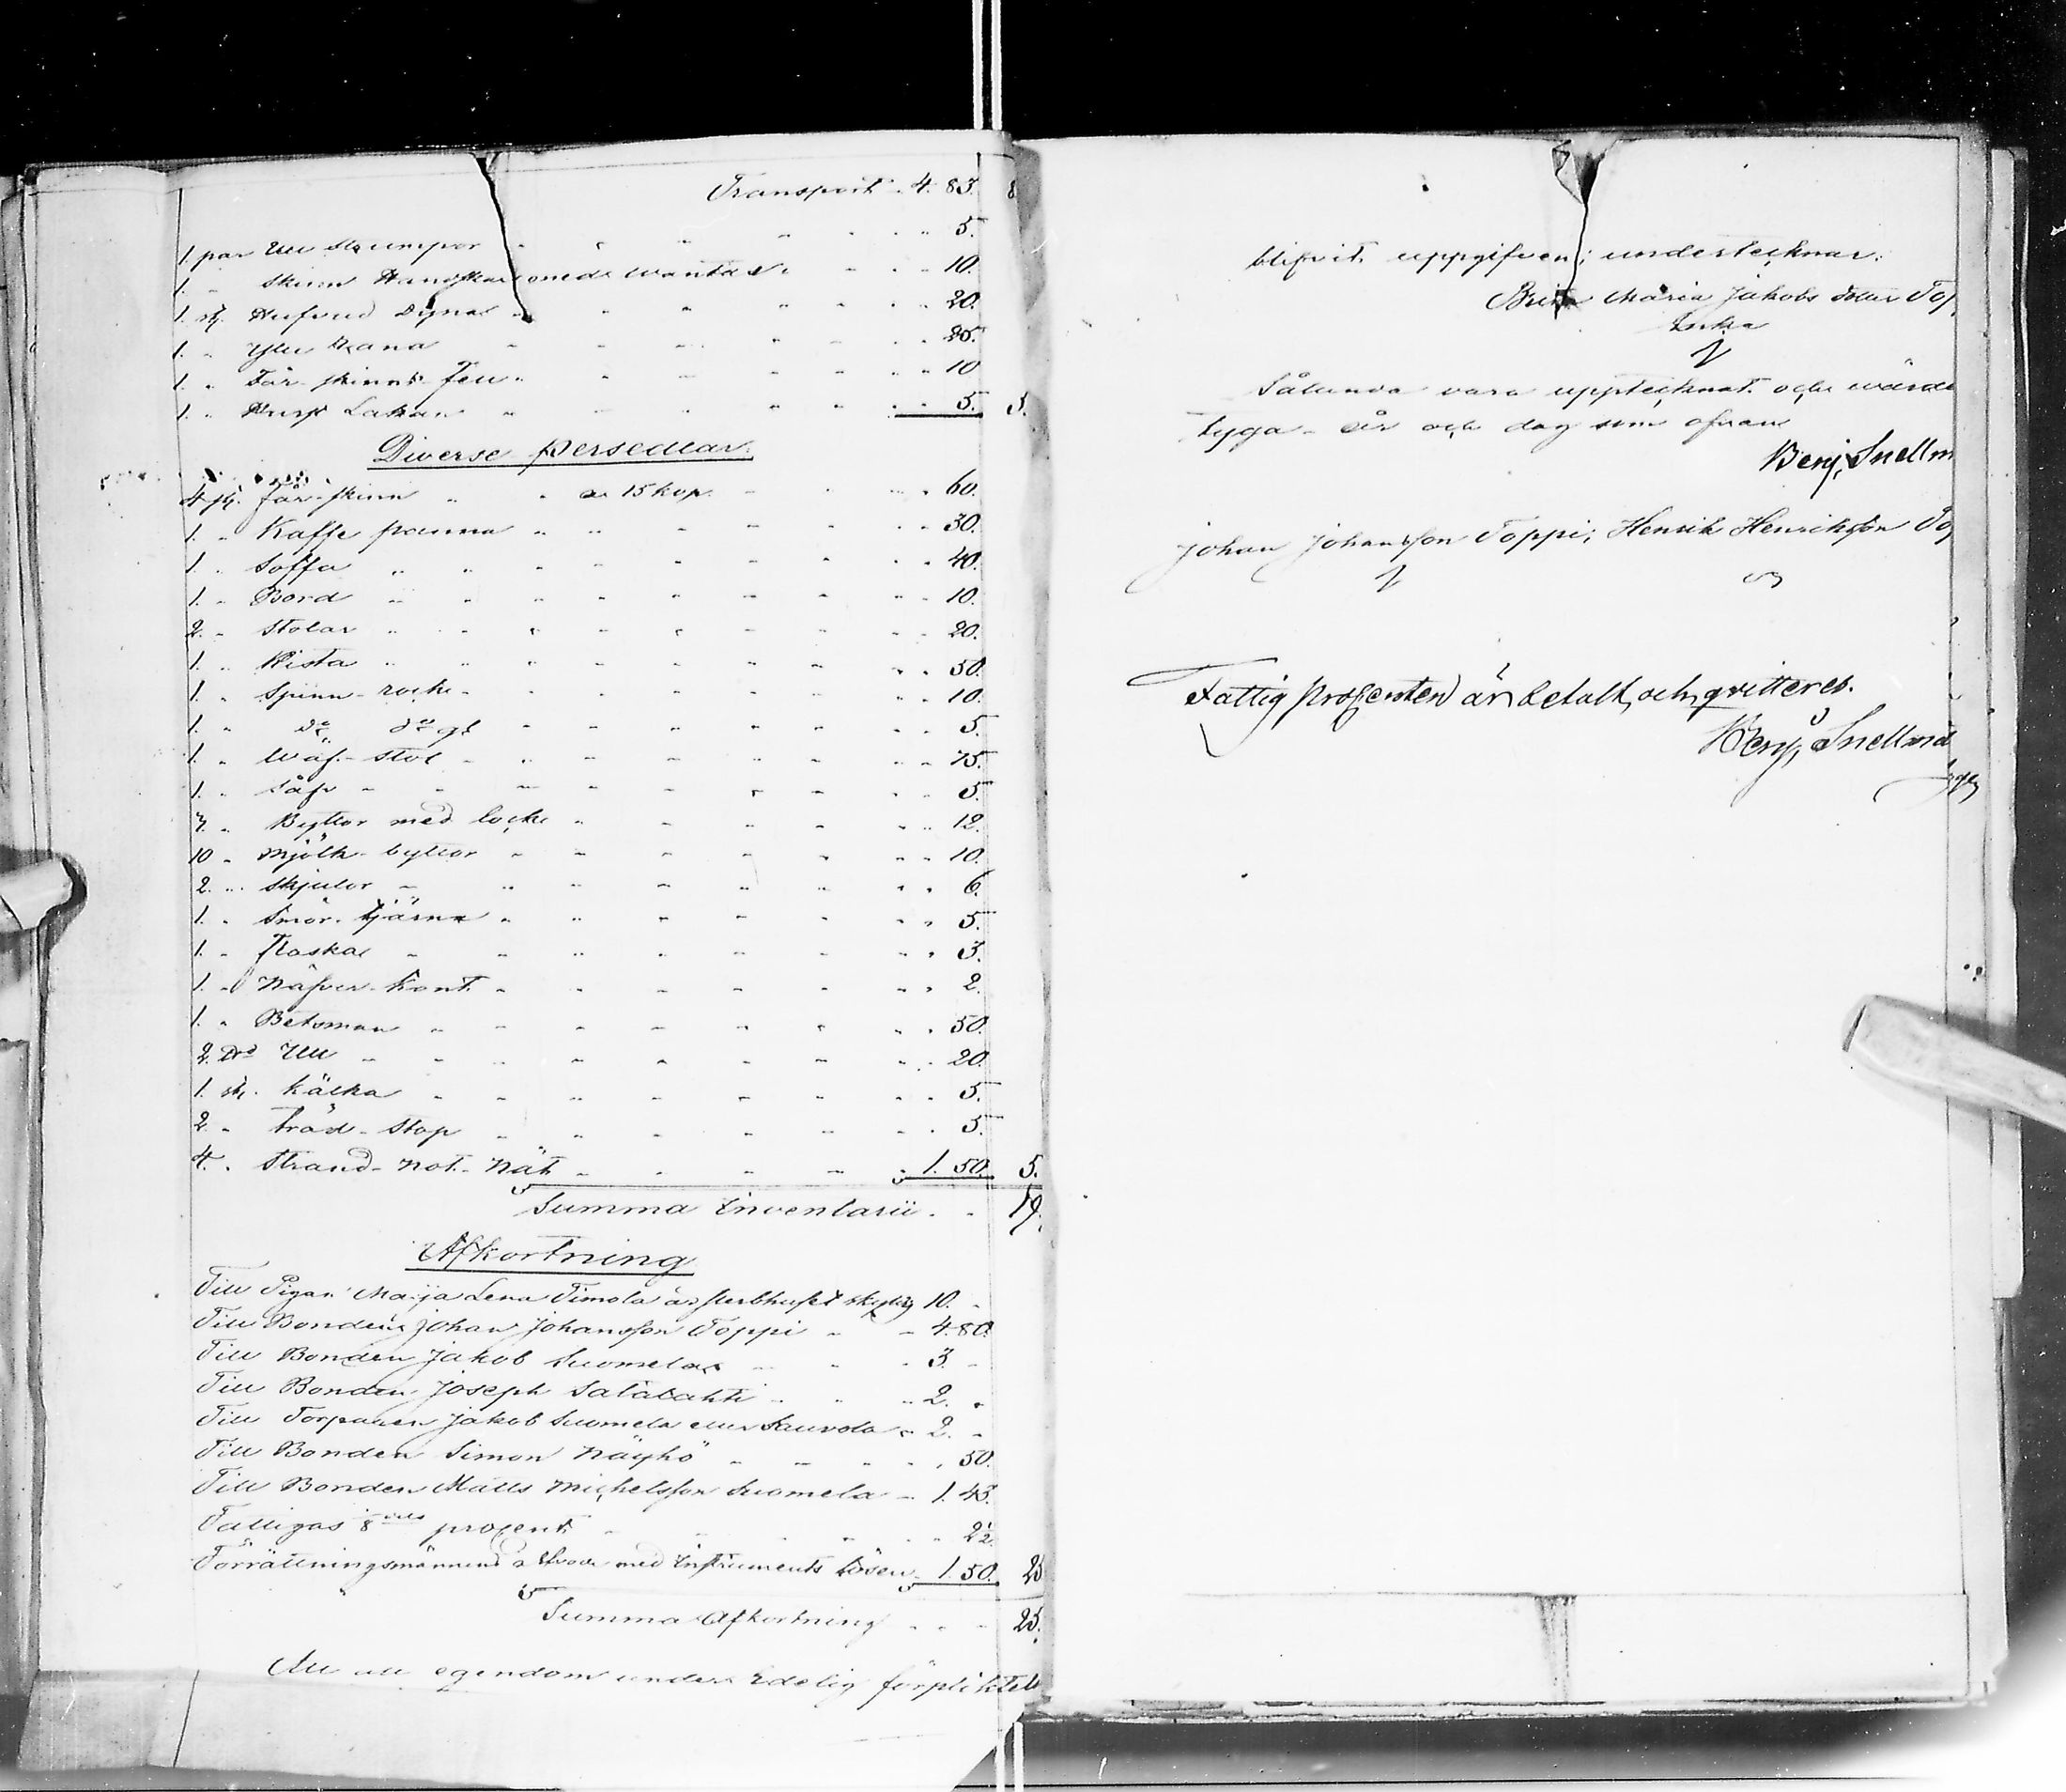 Transport 4. 83. 8
1. par Ull Strumpor 5.
1. " skinn Handskar med wantar 10.
1. st. Hufvud Dyna 20.
1. " Ylle Rana 25.
1. " Får-skinns-fell 10
1. " Hursk Lakan 5. 3.
Diverse persedlar.
4 st. Får-skinn a 15 kop. 60.
1. " Kaffe panna 30.
1. " Soffa 40.
1. " Bord 10.
2. " Stolar 20.
1. " Kista 50.
1. " Spinn-rock 10.
1. " do do gl 5.
1. " Wäf-stol 75.
1. " Såp 5.
7. " Byttor med lock 12.
10 " Mjölk-byttor 10.
2. " Skjulor 6.
1. " Smör-tjärna 5.
1. " Flaska 3.
1. " Näfver-Kont 2.
1. " Betsman 50.
2. Ull 20.
1. st. Kälka 5.
2. " träd-Stop 5.
4. " Strand-not-Nät 1. 50. 5.
Summa Inventarii 19.
Afkortning
Till Pigan Maija Lena Timola är sterbhuset skyldig 10.
Till Bonden Johan Johansson Toppi 4. 80.
Till Bonden Jakob Suomela 3.
Till Bonden Joseph Satalahti 2.
Till Torparen Jakob Suomela eller Sauvola 2.
Till Bonden Simon Näyhö 50.
Till Bonden Matts Michelsson Suomela 1. 43.
Fattigas 8dels procent 2½
Förrättningsmännens arfvode med Instruments lösen 1. 50. 25
Summa Afkortning 25.
All all egendom under Edelig förpliktel
blifvit uppgifven; undertecknar.
Brita Maria Jakobs dotter Top
Enka
Sålunda vara upptecknat och wärde
tyga - år och dag som ofvan
Benj. Snellm
Johan Johansson Toppi; Henrik Henriksson To
Fattig procenten är betalt, och qvitteres.
Benj. Snellma